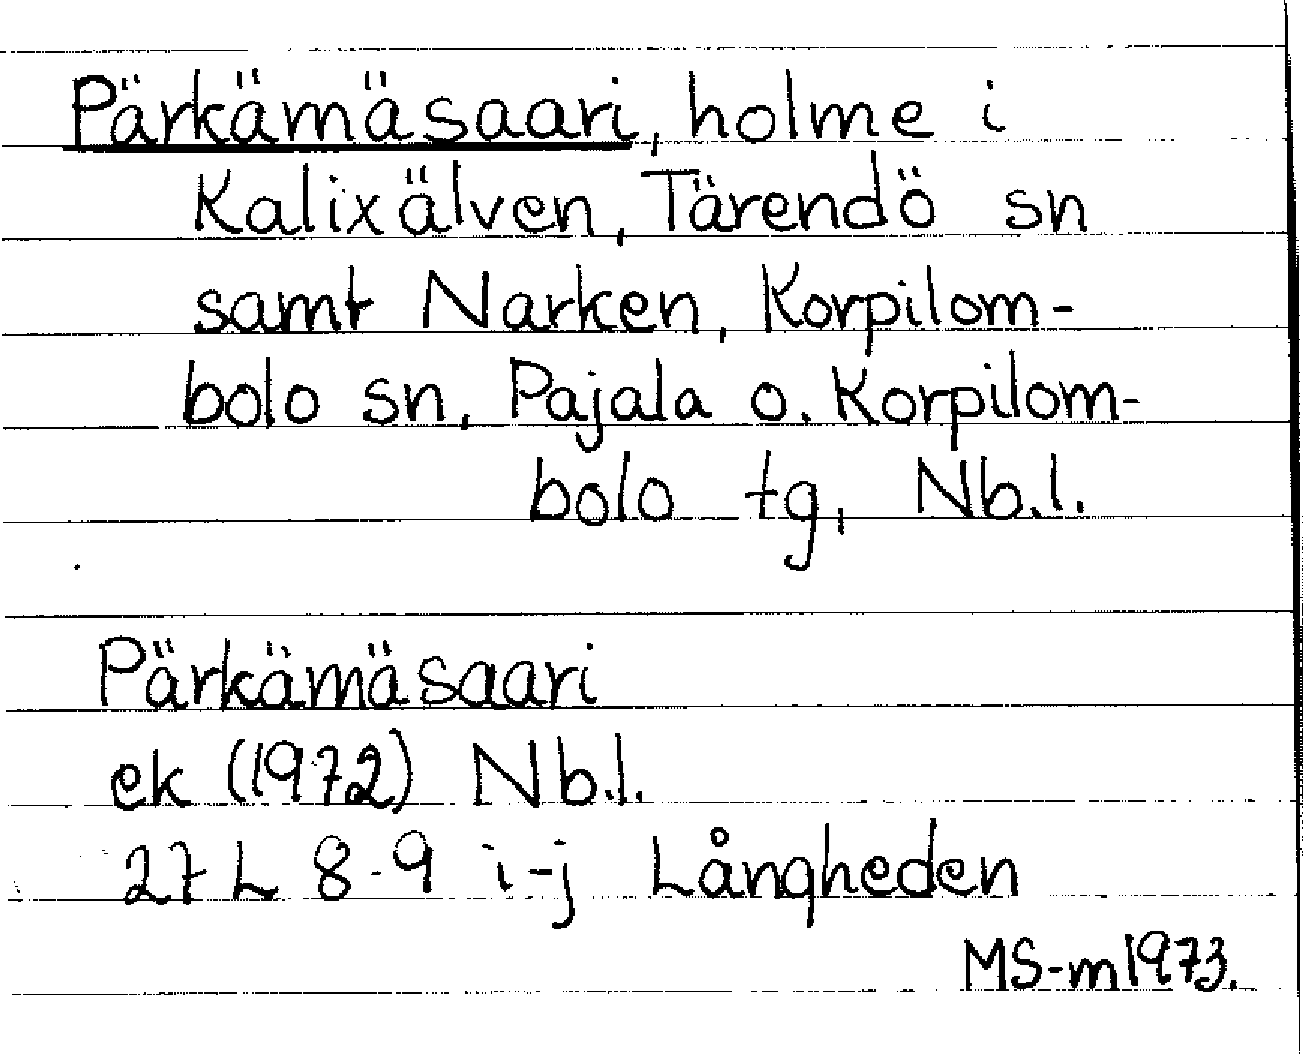 Pärkämäsaari, holme i
Kalixälven, Tärendö sn
samt Narken, Korpilom-
bolo sn, Pajala o. Korpilom-
bolo tg, Nb.l.
Pärkämäsaari
ek (1972) Nb.l.
27 L 8-9 i-j Långheden
MS-m1973.